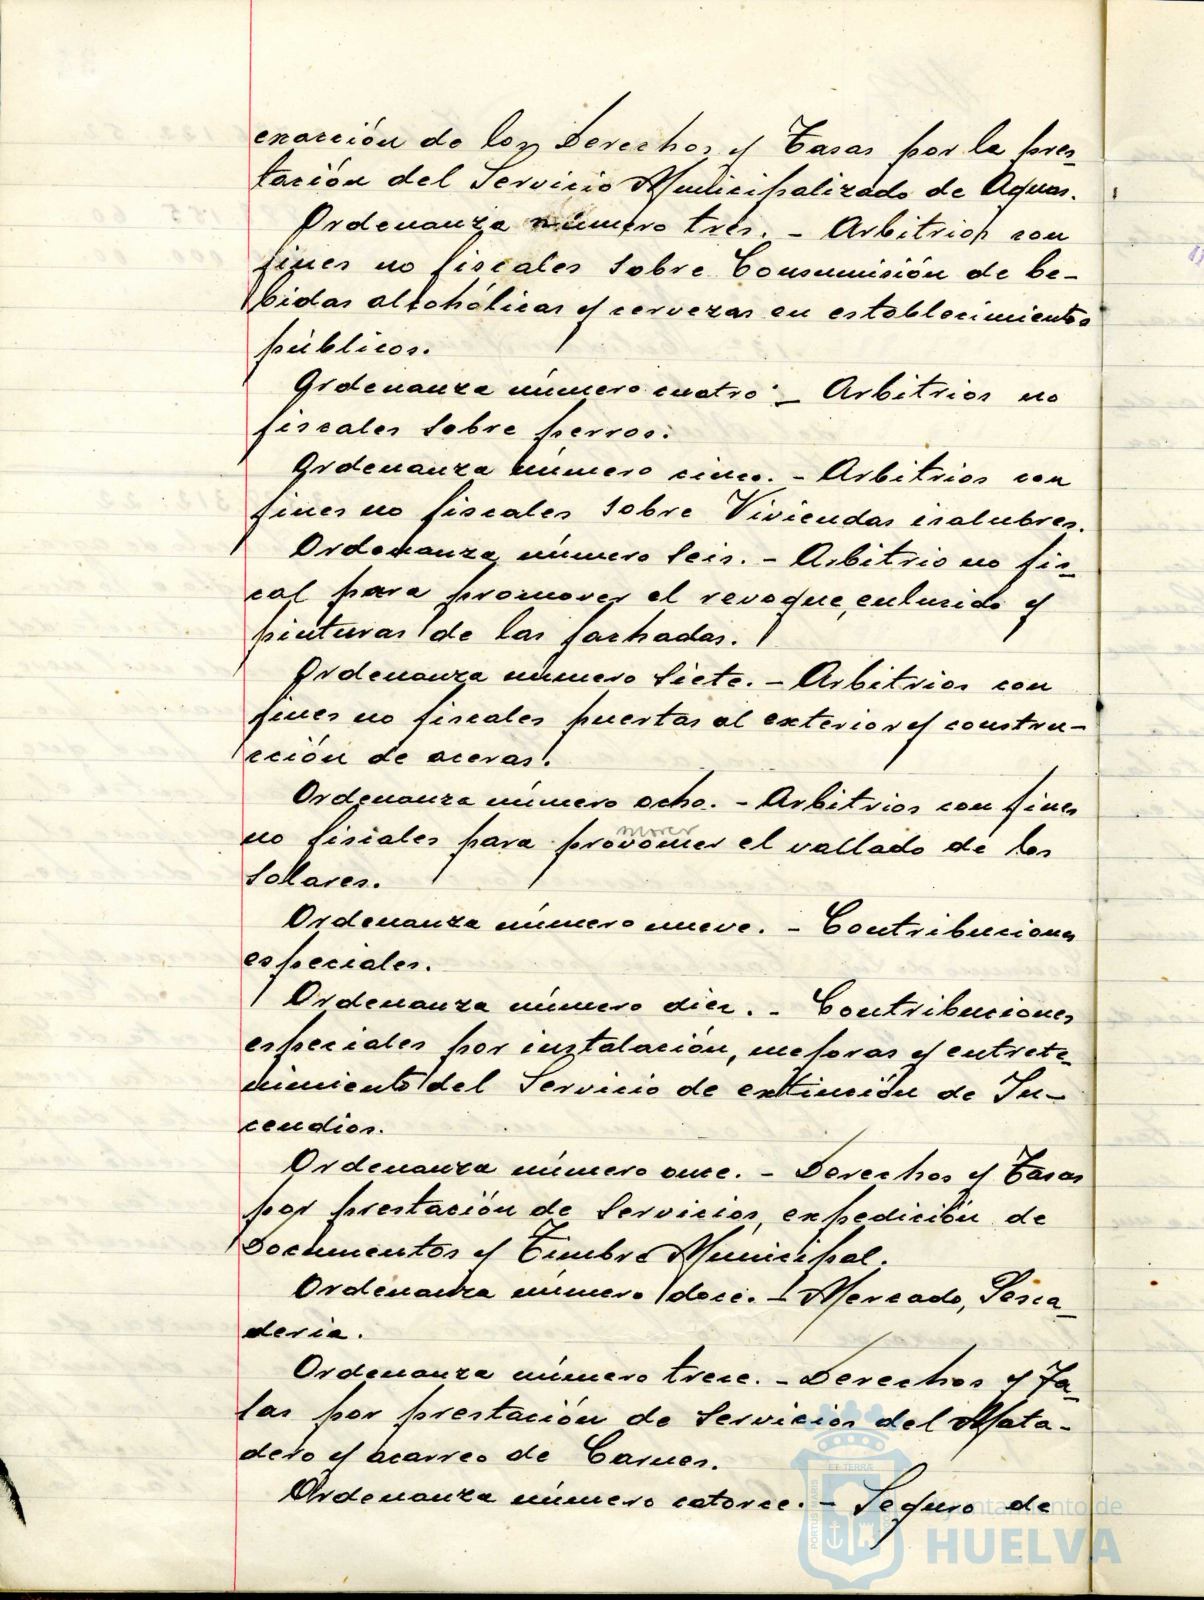 exacción de los Derechos y Tasas por la pres-
tación del Servicio Municipalizado de Aguas.
Ordenanza número tres. - Arbitrios con
fines no fiscales sobre Consumisión de be-
bidas alcohólicas y cervezas en establecimientos
públicos.
Ordenanza número cuatro. - Arbitrios no
fiscales sobre perros.
Ordenanza número cinco. - Arbitrios con
fines no fiscales sobre Viviendas isalubres.
Ordenanza número seis. - Arbitrio no fis-
cal para promover el revoque, enlucido y
pinturas de las fachadas.
Ordenanza número siete. - Arbitrios con
fines no fiscales puertas al exterior y constru-
cción de aceras.
Ordenanza número ocho. - Arbitrios con fines
mover
no fisiales para provomer el vallado de los
solares.
Ordenanza número nueve. - Contribuciones
especiales.
Ordenanza número diez. - Contribuciones
especiales por instalación, mejoras y entrete-
nimiento del Servicio de extinción de In-
cendios.
Ordenanza número once. - Derechos y Tasas
por prestación de servicios, expedición de
Documentos y Timbre Municipal.
Ordenanza número doce. - Mercado, Pesca-
deria.
Ordenanza número trece. - Derechos y Ta-
sas por prestación de servicios del Mata-
dero y acarreo de Carnes.
Ordenanza número catorce. - Seguro de
Ayuntamiento de
HUELVA
PORTUS MARIS
ET TERRÆ